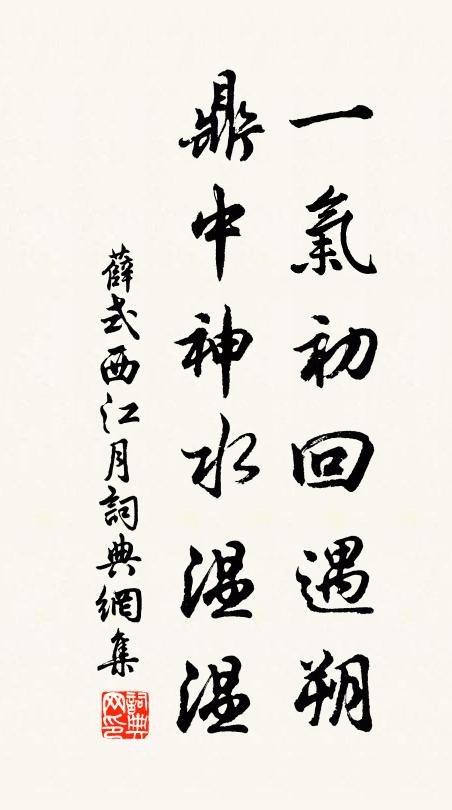 一氣初回遇朔
鼎中神水温温
薛式西江月詞典網集
詞典网印